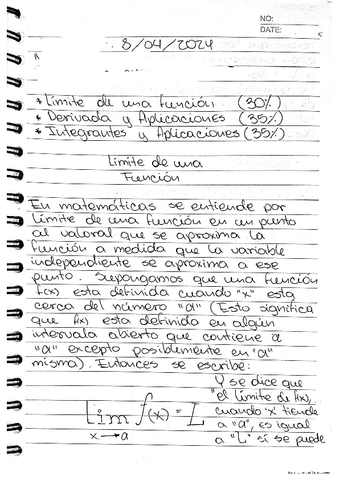 NO:
DATE:
8/04/2024
* Límite de una función (30%)
* Derivada y Aplicaciones (35%)
* Integrantes y Aplicaciones (35%)
Límite de una
Función
En matemáticas se entiende por
límite de una función en un punto
al valoral que se aproxima la
función a medida que la variable
independiente se aproxima a ese
punto. Supongamos que una función
f(x) esta definida cuando "x" esta
cerca del número "a" (Esto significa
que f(x) esta definida en algún
intervalo abierto que contiene a
"a" excepto posiblemente en "a"
misma). Entances se escribe:
Y se dice que
"el límite de f(x),
cuando "x" tiende
a "a", es igual
a "L" sí se puede
Lim f(x) = L
x→a